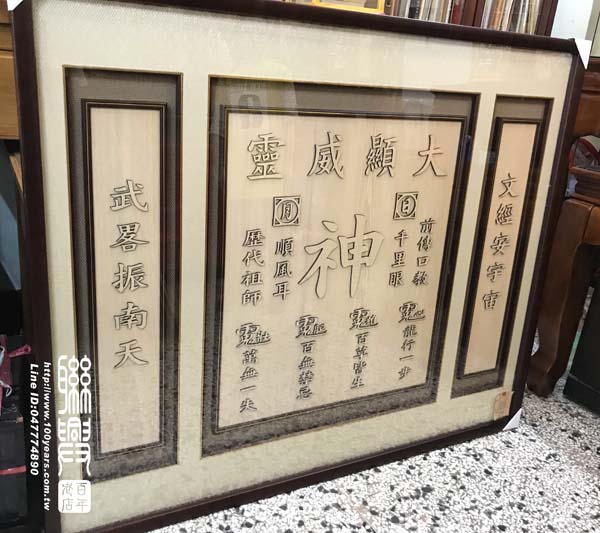 大顯威靈
文經安宇宙
武畧振南天
前傳口教
千里眼
日
神
月
順風耳
歷代祖師
龍行一步
百草皆生
百無禁忌
萬無一失
聯發
百年老店
http://www.100years.com.tw
Line ID:047774890